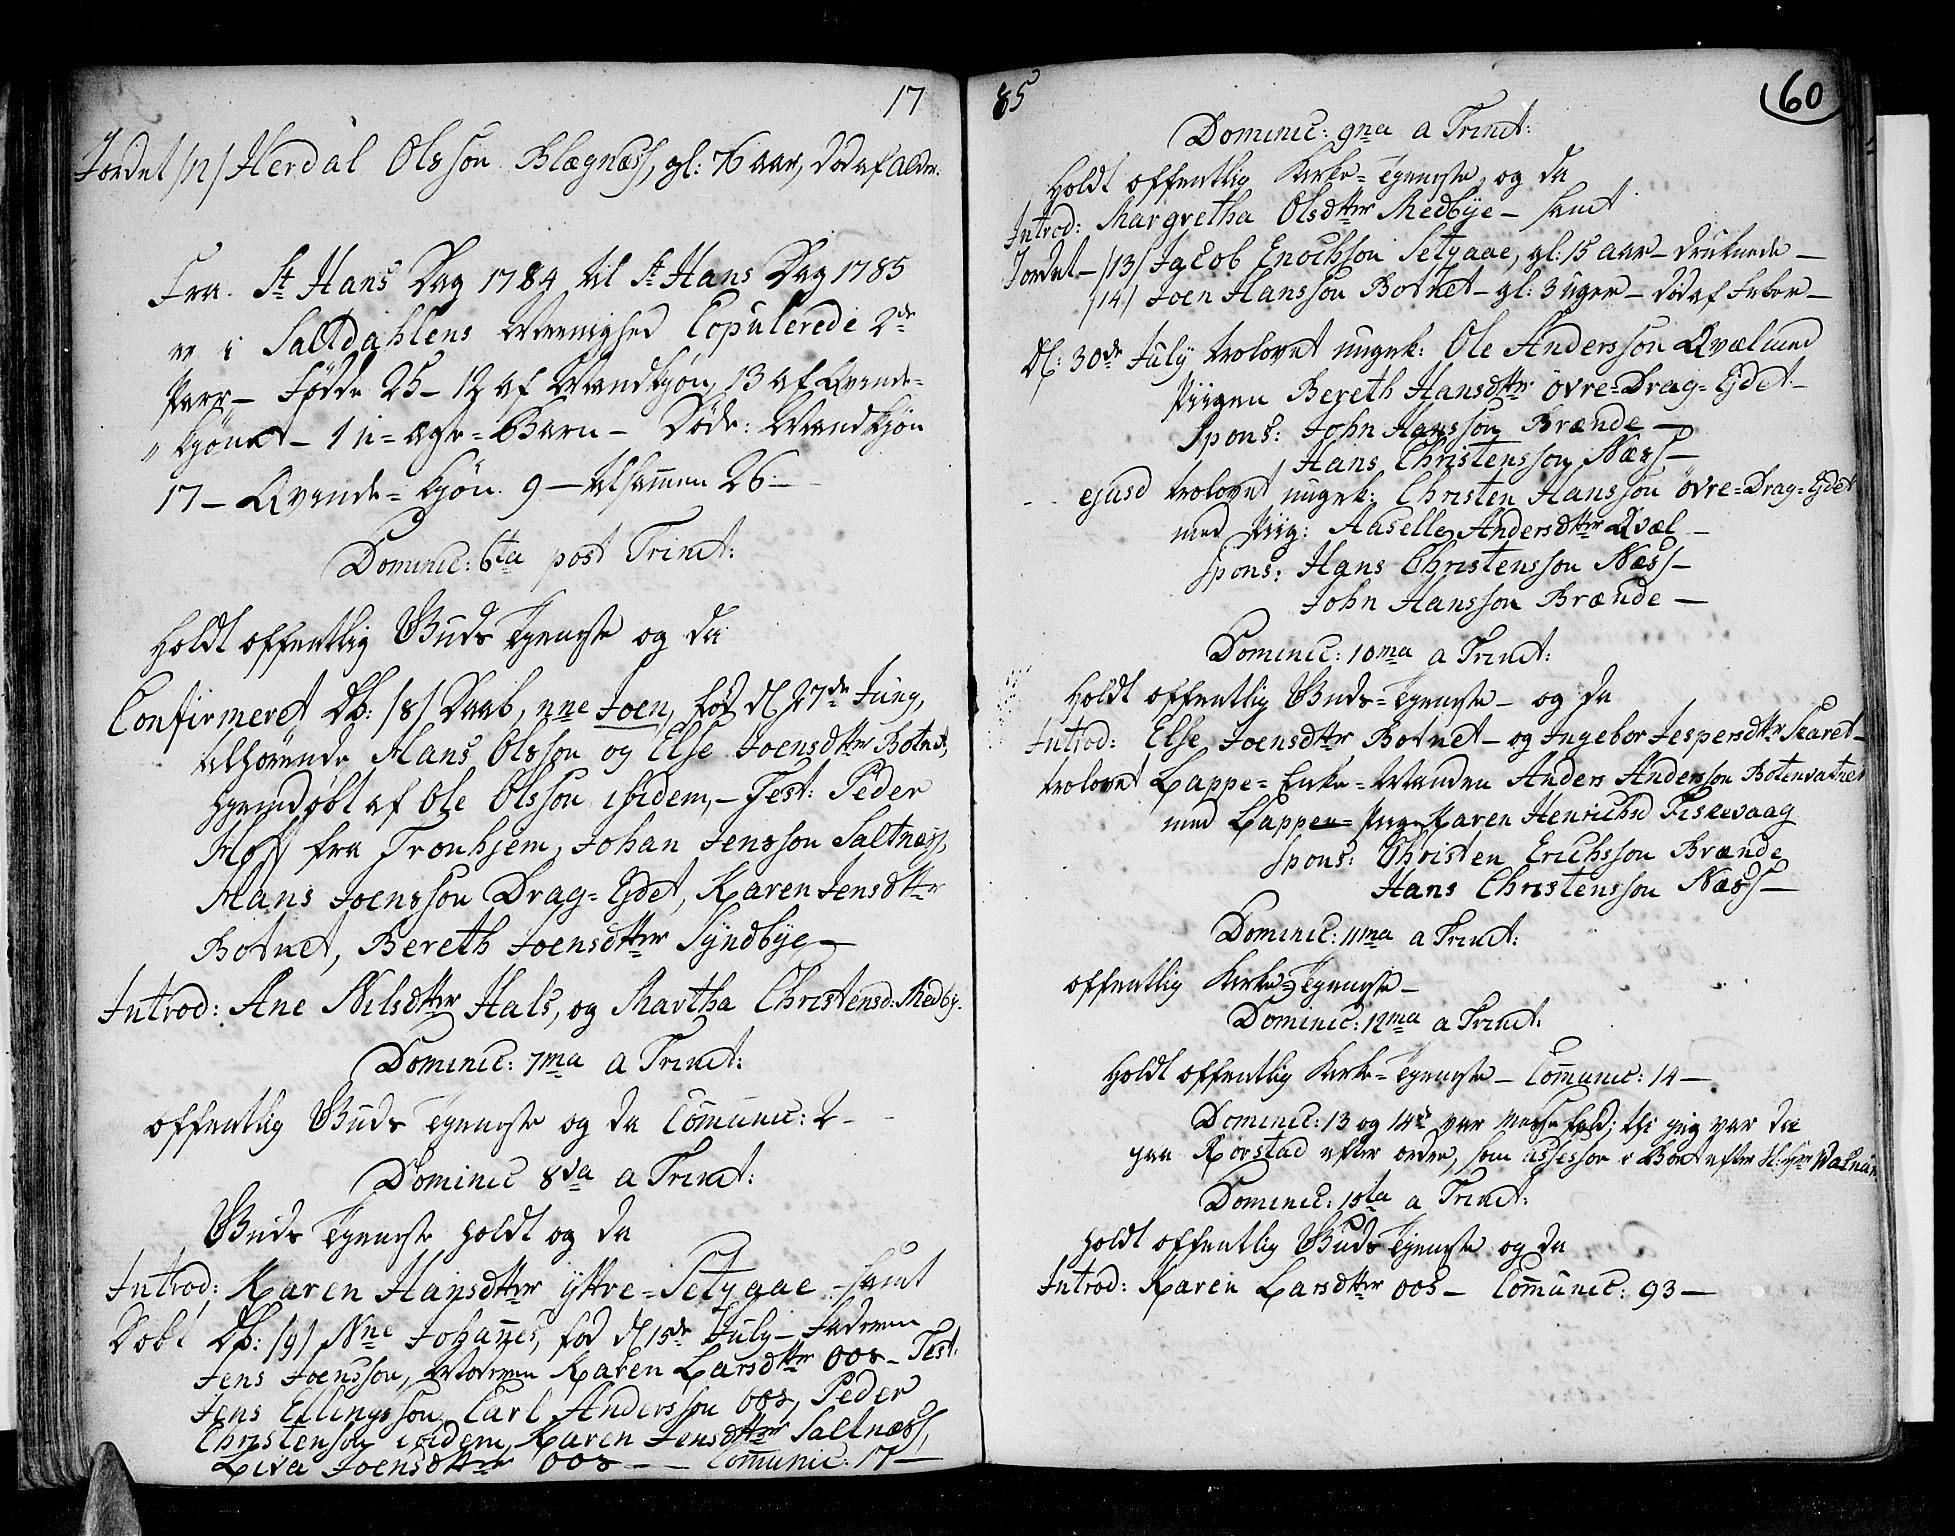 17
Jordet /12/ Herdal Olsson Blegnæss, gl: 76 aar, død af Alder.
Fra St Hans Dag 1784 til St Hans Dag 1785
er i Saltdahlens Meenighed Copulerede 2de
Parr – Fødde 25 – 12 af Mandkjøn, 13 af Qvinde=
kjønet – 1 u=ægte=Barn – Døde: Mandkjøn
17 – Qvinde=kjøn 9 – tilsamen 26 –
Dominic: 6ta post Trinit:
Holdt offentlig Guds Tjeneste og da
Confirmeret Db: /8/ Daab, nne Joen, fød dl 27de Juny,
tilhørende Hans Olsson og Else Joensdttr Botnet,
hjemdøbt af Ole Olsson ibidem, – Test: Peder
Hoff fra Tronhjem, Johan Jensson Saltnæss,
Hans Joensson Drag=Ejdet, Karen Jensdttr
Botnet, Bereth Joensdttr Syndbye –
Introd: Ane Nilsdttr Hals, og Martha Christensd: Medby.
Dominic: 7ma a Trinit:
offentlig Guds Tjeneste og da Comunic: 2 –
Dominic 8va a Trinit:
Guds Tjeneste holdt og da
Introd: Karen Hansdttr ÿttre=Setygaae – samt
Døbt Db: /9/ Nne Johanes, fød dl 15de July – Faderen
Jens Joensson, Moderen Karen Larsdttr oos – Test:
Jens Ellingsson, Carl Andersson oos, Peder
Christenson ibidem, Karen Jensdttr Saltnæss,
Liva Joensdttr oos – – Comunic: 17 –
85
60
Dominic: 9na a Trinit:
Holdt offentlig Kirke=Tjeneste, og da
Introd: Margretha Olsdttr Medbye – samt
Jordet – /13/ Jacob Enochsson Setygaae, gl: 15 aar – druknede –
/14/ Joen Hansson Botnet – gl: 3 uger – død af Feber –
Dl: 30de July trolovet ungk: Ole Andersson Qvæl med
Piigen Bereth Hansdttr övre=Drag=Ejdet –
Spons: John Hansson Brænde –
Hans Christensson Næss –
ejusd trolovet ungk: Christen Hansson övre=Drag=Ejdet
med Piig: Aaselle Andersdttr Qvæl –
Spons: Hans Christensson Næss –
John Hansson Brænde –
Dominic: 10ma a Trinit:
Holdt offentlig Guds=Tjeneste – og da
Introd: Else Joensdttr Botnet – og Ingebor Jespersdttr Skaret –
trolovet Lappe=Enke=Manden Anders Andersson Botenvatnet
med Lappe=Pige Karen Henrichsd Fiskevaag
Spons: Christen Erichsson Brænde
Hans Christensson Næss –
Dominic: 11ma a Trinit:
offentlig Kirke=Tjeneste –
Dominic: 12ma a Trinit:
Holdt offentlig Kirke=Tjeneste – Comunic: 14 –
Dominic: 13 og 14de var Messefald; thi jeg var da
paa Rørstad efter ordre, som assessor i Boet efter Hl: hr Walnum
Dominic: 15ta a Trinit:
Holdt offentlig Guds Tjeneste og da
Introd: Karen Larsdttr oos – Comunic: 93 –